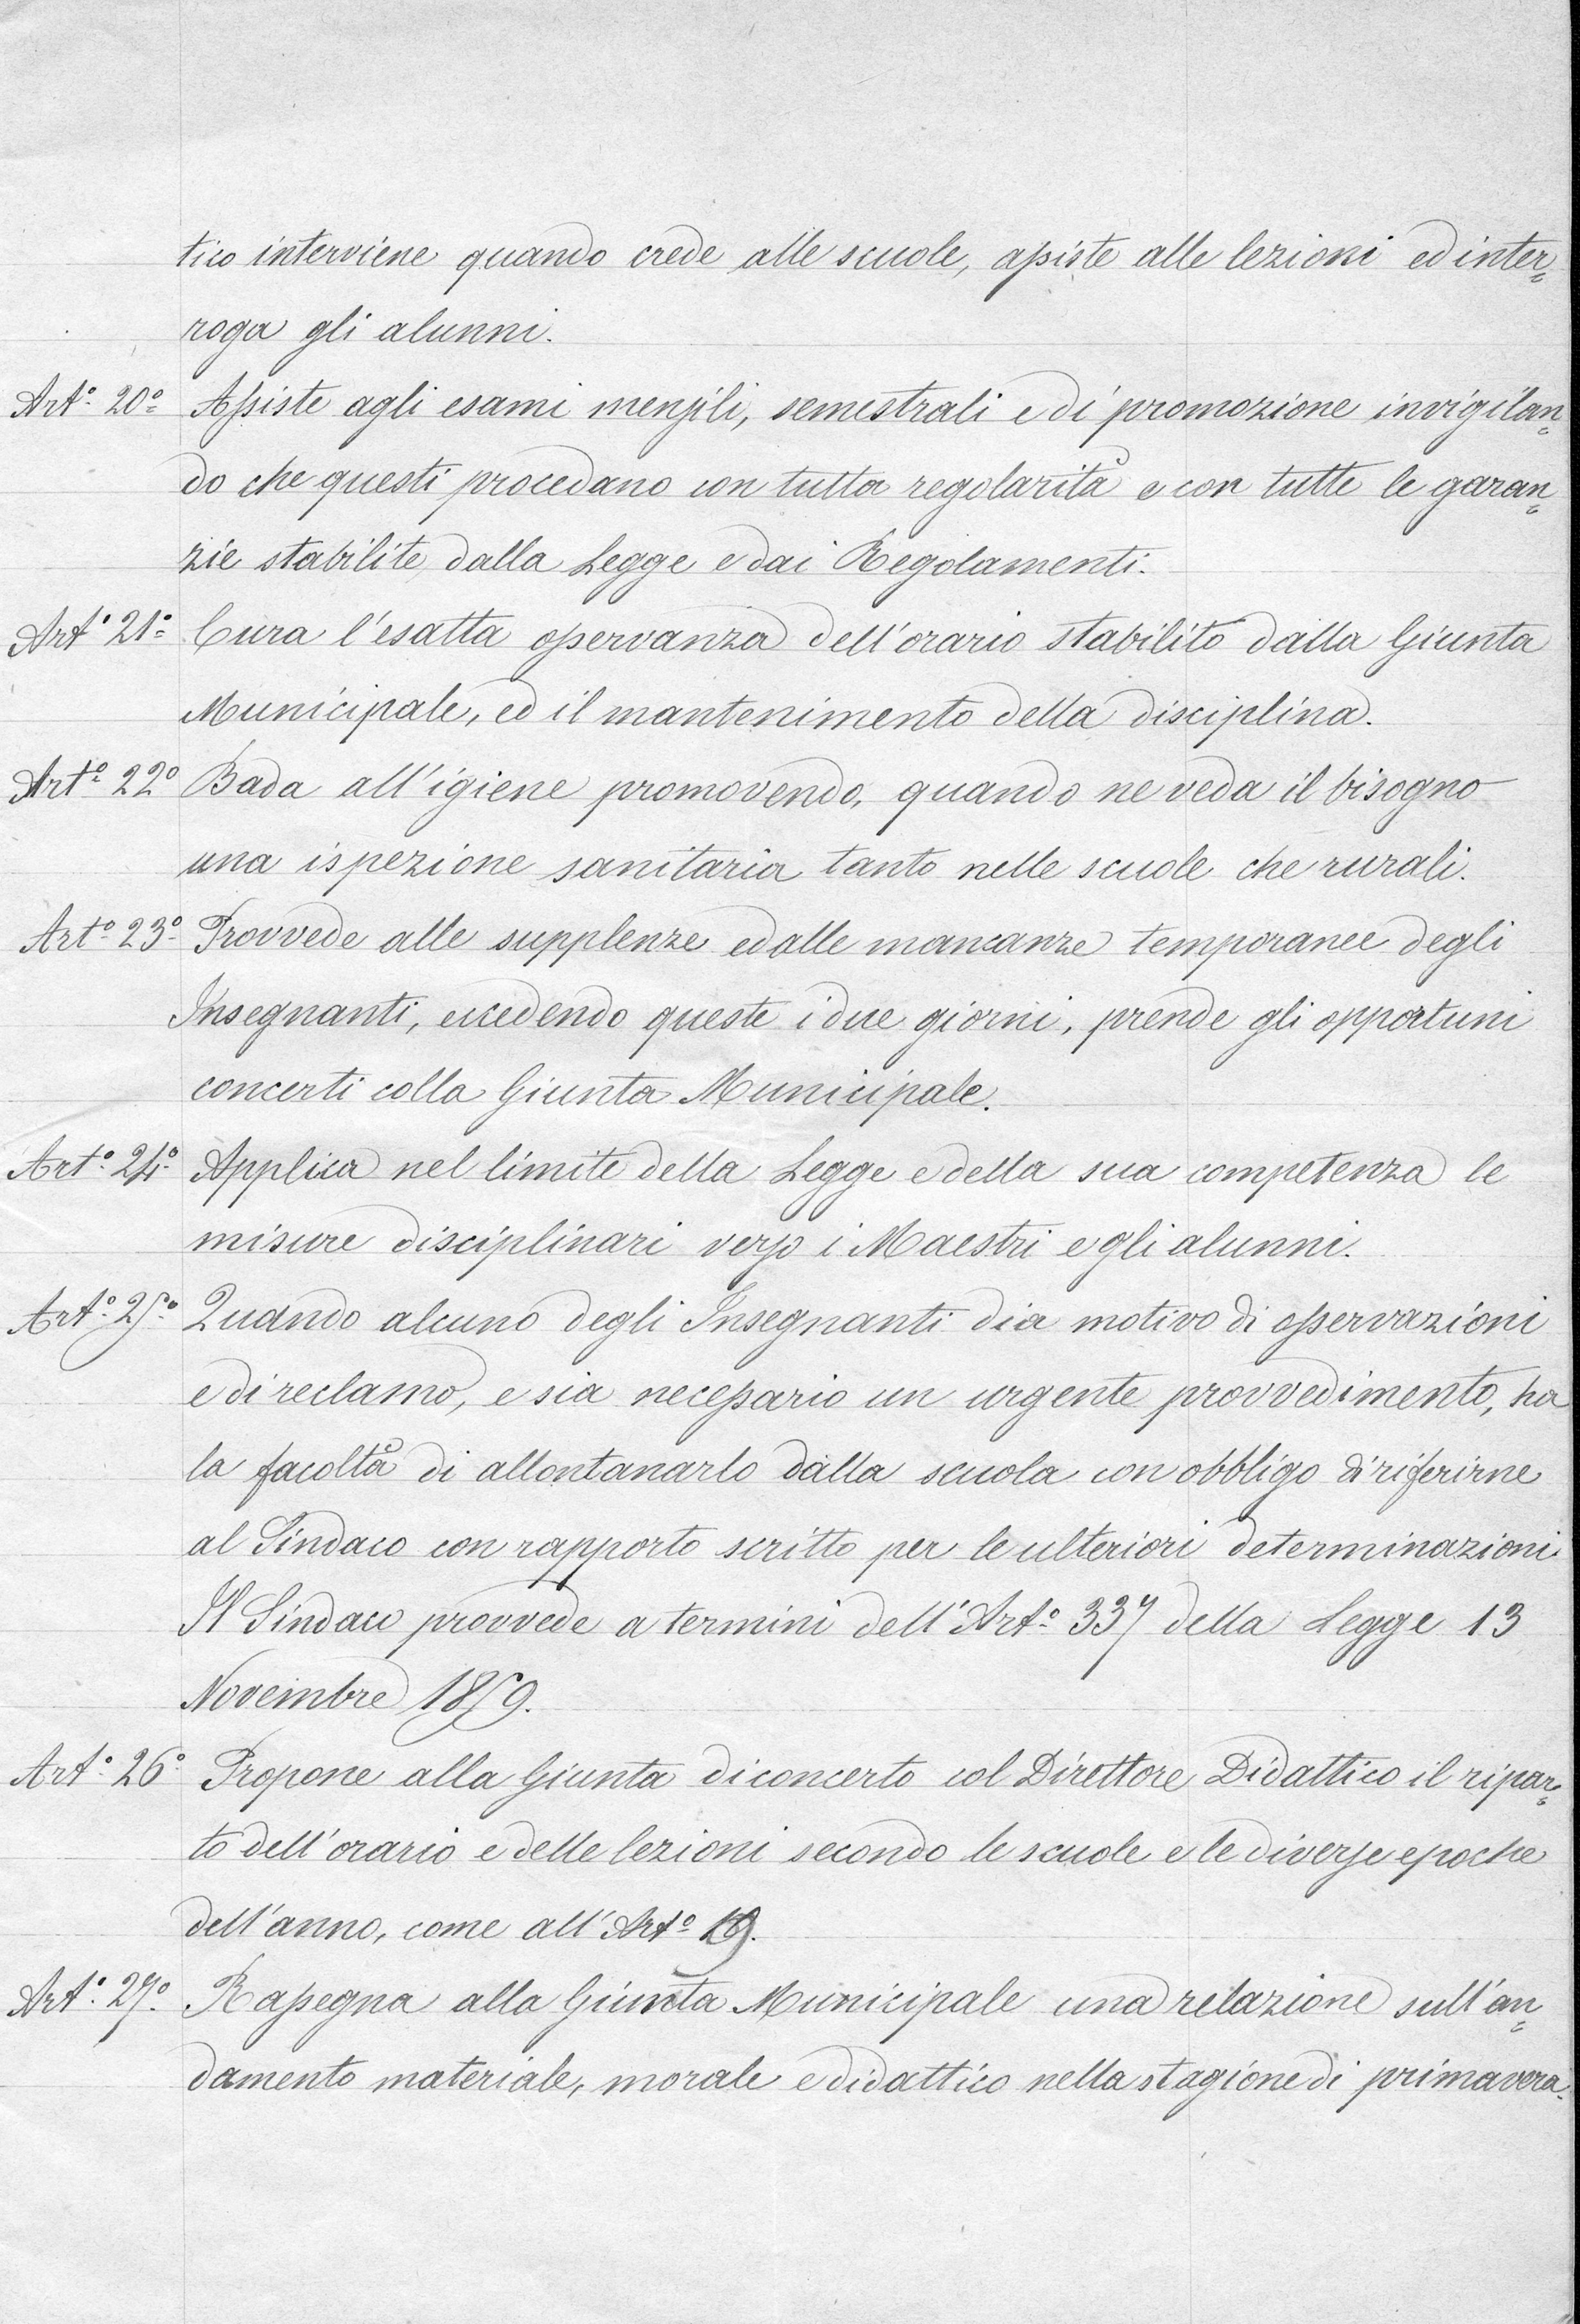 tico interviene quando crede alle scuole, assiste alle lezioni ed inter=
roga gli alunni.
Art.º 20º Assiste agli esami mensili, semestrali e di promozione invigilan=
do che questi procedano con tutta regolarità e con tutte le garan=
zie stabilite dalla Legge e dai Regolamenti.
Art.º 21º Cura l'esatta osservanza dell'orario stabilito dalla Giunta
Municipale, ed il mantenimento della disciplina.
Art.º 22º Bada all'igiene promovendo, quando ne veda il bisogno
una ispezione sanitaria tanto nelle scuole che rurali.
Art.º 23º Provvede alle supplenze ed alle mancanze temporanee degli
Insegnanti, eccedendo queste i due giorni, prende gli opportuni
concerti colla Giunta Municipale.
Art.º 24º Applica nel limite della Legge e della sua competenza le
misure disciplinari verso i Maestri e gli alunni.
Art.º 25º Quando alcuno degli Insegnanti dia motivo di osservazioni
e di reclamo, e sia necessario un urgente provvedimento, ha
la facoltà di allontanarlo dalla scuola con obbligo di riferirne
al Sindaco con rapporto scritto per le ulteriori determinazioni.
Il Sindaco provvede a termini dell'Art.º 337 della Legge 13
Novembre 1859.
Art.º 26º Propone alla Giunta di concerto col Direttore Didattico il ripar=
to dell'orario e delle lezioni secondo le scuole e le diverse epoche
dell'anno, come all'Art.º 19.
Art.º 27º Rassegna alla Giunta Municipale una relazione sull'an=
damento materiale, morale e didattico nella stagione di primavera.